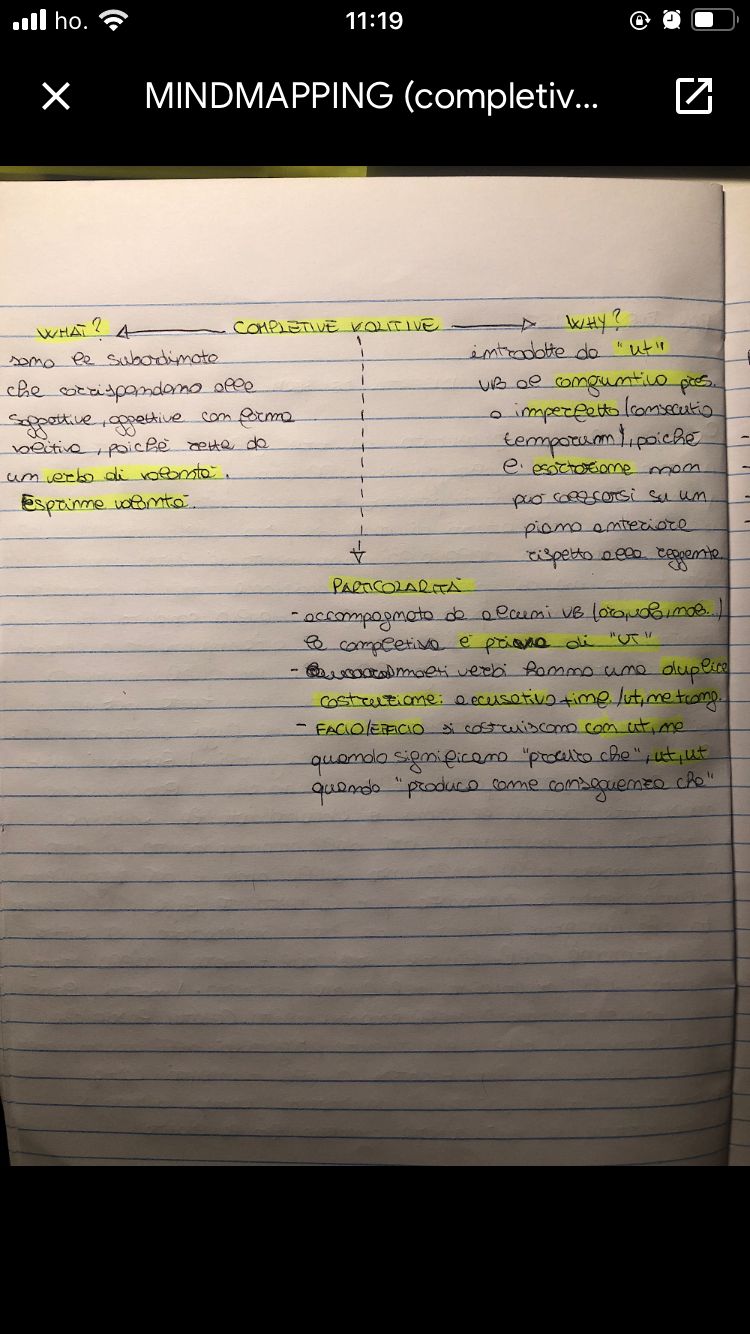 ho.
11:19
MINDMAPPING (completiv...
WHAT?
COMPLETIVE VOLITIVE
WHY?
sono le subordinate
che corrispondono alle
soggettive, oggettive con forma
volitiva, poiché rette da
un verbo di volontà.
Esprime volontà.
introdotte da "ut"
VB al congiuntivo pres.
o imperfetto (consecutio
temporum), poiché
è esortazione non
può collocarsi su un
piano anteriore
rispetto alla reggente.
PARTICOLARITÀ
- accompagnata da alcuni VB (oro, volo, malo..)
la completiva è priva di "UT"
- molti verbi hanno una duplice
costruzione: accusativo + inf / ut, ne + cong.
- FACIO/EFFICIO si costruiscono con ut, ne
quando significano "procuro che", ut, ut
quando "produco come conseguenza che"